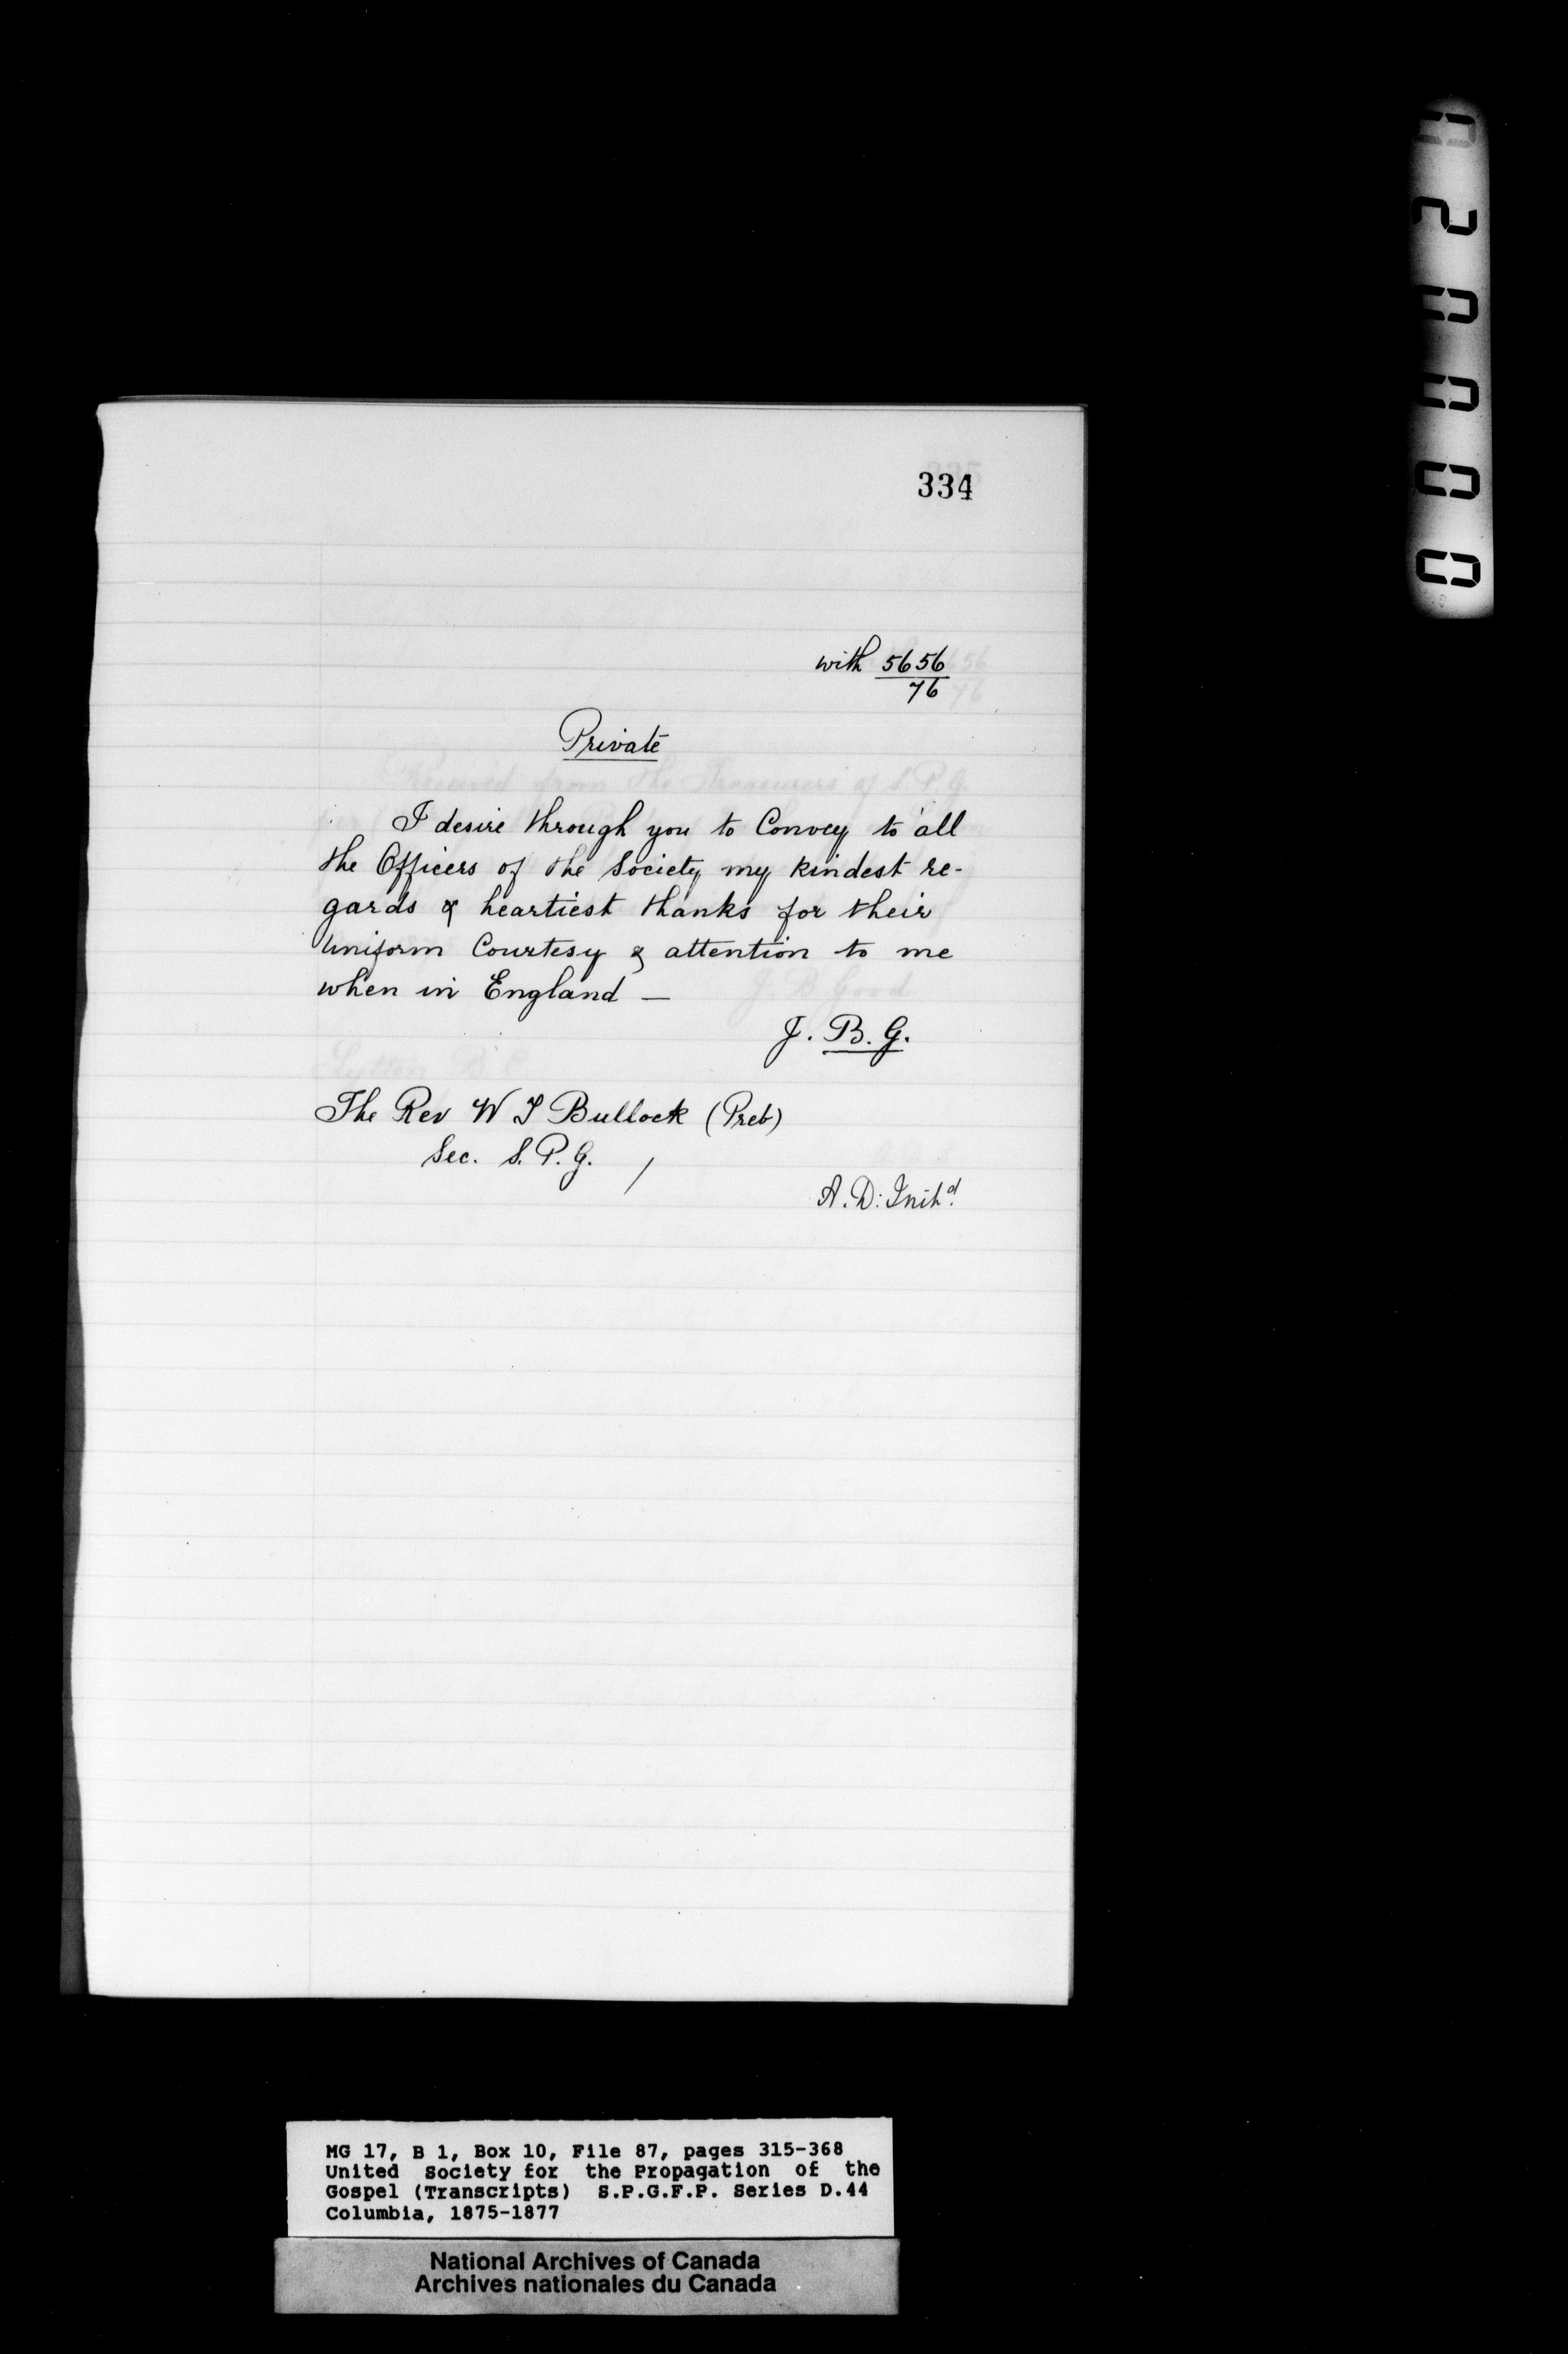 334
with 5656
76
Private
I desire through you to Convey to all
the Officers of the Society my kindest re-
gards & heartiest thanks for their
uniform Courtesy & attention to me
when in England —
J. B. G.
The Rev W T Bullock (Preb)
Sec. S. P. G. /
A. D: Init.d
MG 17, B 1, Box 10, File 87, pages 315-368
United Society for the Propagation of the
Gospel (Transcripts) S.P.G.F.P. Series D.44
Columbia, 1875-1877
National Archives of Canada
Archives nationales du Canada